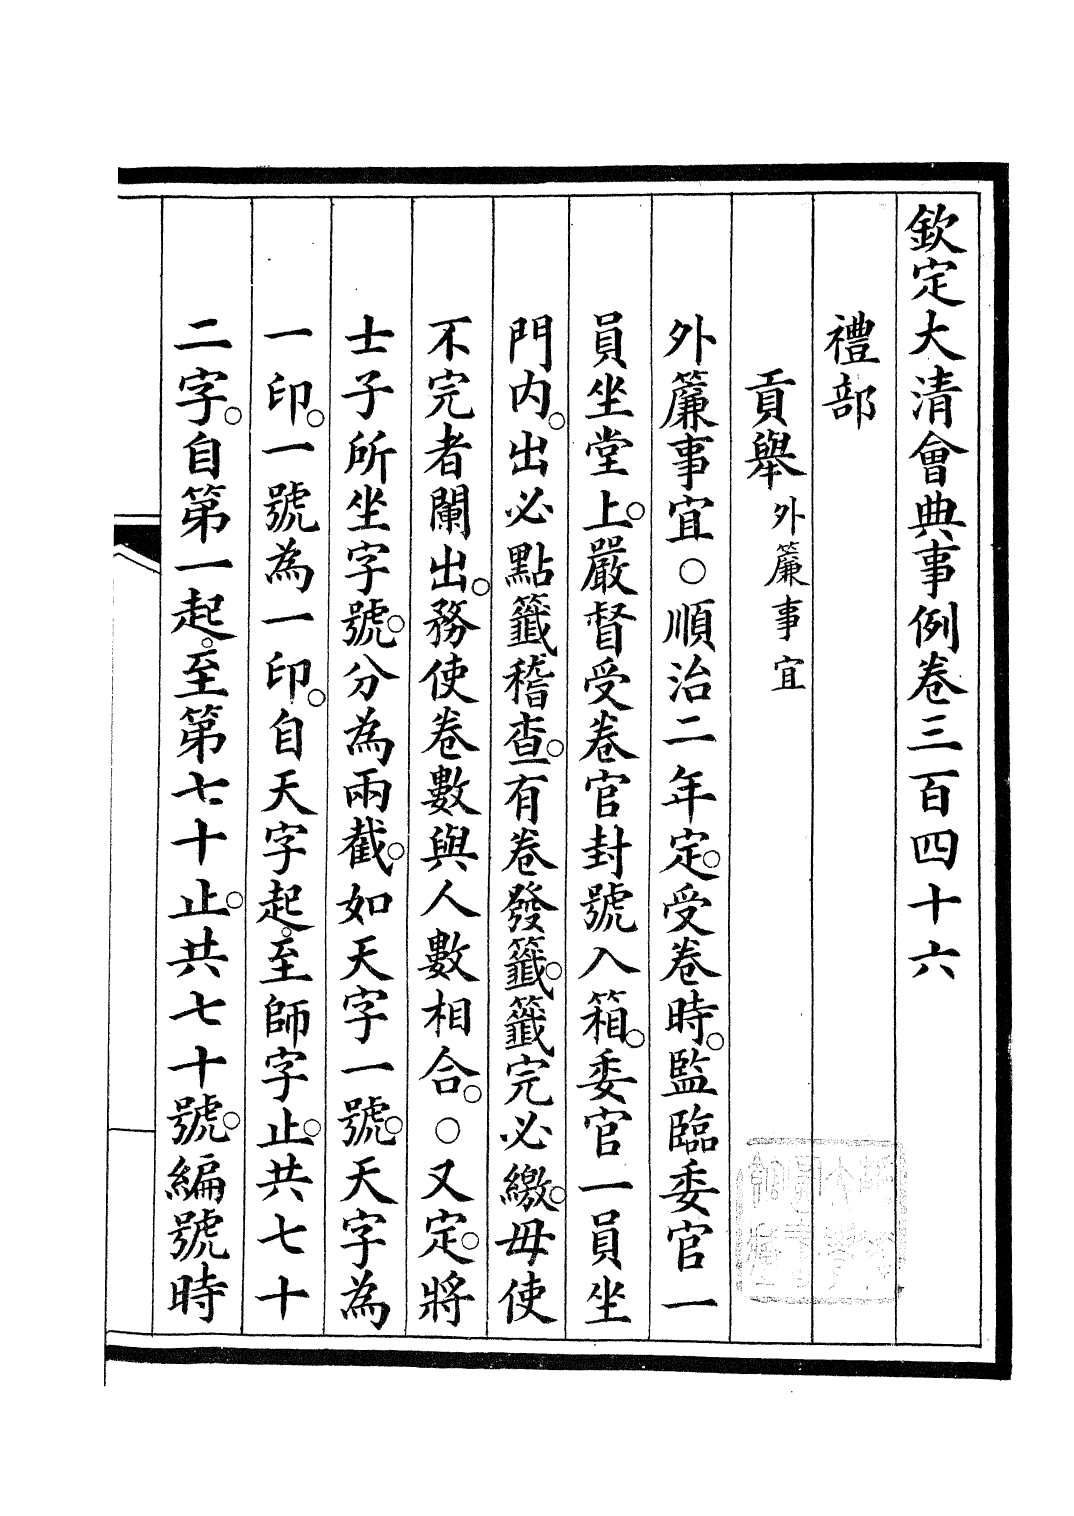 欽定大清會典事例卷三百四十六
禮部
貢舉外簾事宜
外簾事宜○順治二年定。受卷時。監臨委官一
員坐堂上。嚴督受卷官封號入箱。委官一員坐
門內。出必點籤稽查。有卷發籤。籤完必繳。毋使
不完者闌出。務使卷數與人數相合。○又定。將
士子所坐字號。分為兩截。如天字一號。天字為
一印。一號為一印。自天字起。至師字止。共七十
二字。自第一起。至第七十止。共七十號。編號時